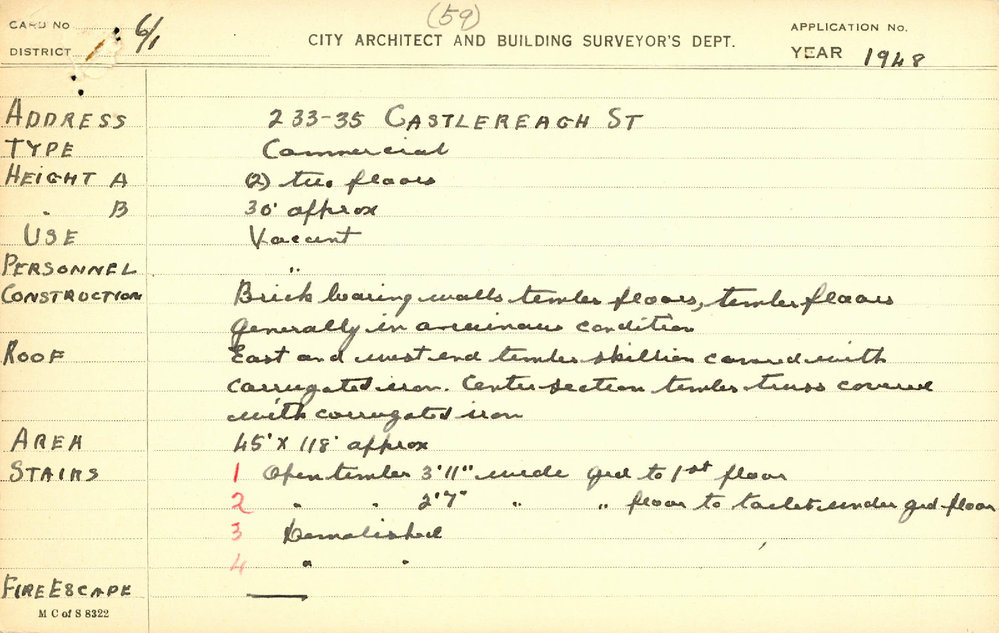 (59)
CARD No 6/1
CITY ARCHITECT AND BUILDING SURVEYOR'S DEPT.
APPLICATION No.
DISTRICT
YEAR 1948
ADDRESS 233-35 CASTLEREAGH ST
TYPE Commercial
HEIGHT A (2) two floors
" B 30' approx
USE Vacant
PERSONNEL "
CONSTRUCTION Brick bearing walls timber floors, timber floors
generally in a ruinous condition
ROOF East and west end timber skillion covered with
corrugated iron. Center section timber truss covered
with corrugated iron
AREA 45' X 118' approx
STAIRS 1 Open timber 3'11" wide grd to 1st floor
2 " " 2'7" " " floor to toilet under grd floor
3 Demolished
4 " "
FIRE ESCAPE —
M C of S 8322